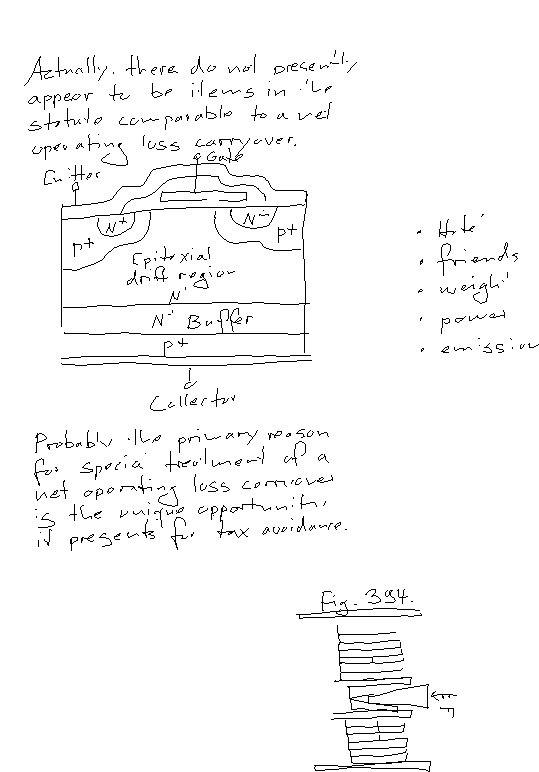 Actually, there do not presently
appear to be items in the
statute comparable to a net
operating loss carryover.
Emitter
Gate
N+
N+
P+
P+
Epitaxial
drift region
N-
N+ Buffer
P+
Collector
• Hotel
• friends
• weight
• power
• emission
Probably the primary reason
for special treatment of a
net operating loss carryover
is the unique opportunity
it presents for tax avoidance.
Fig. 394.
F